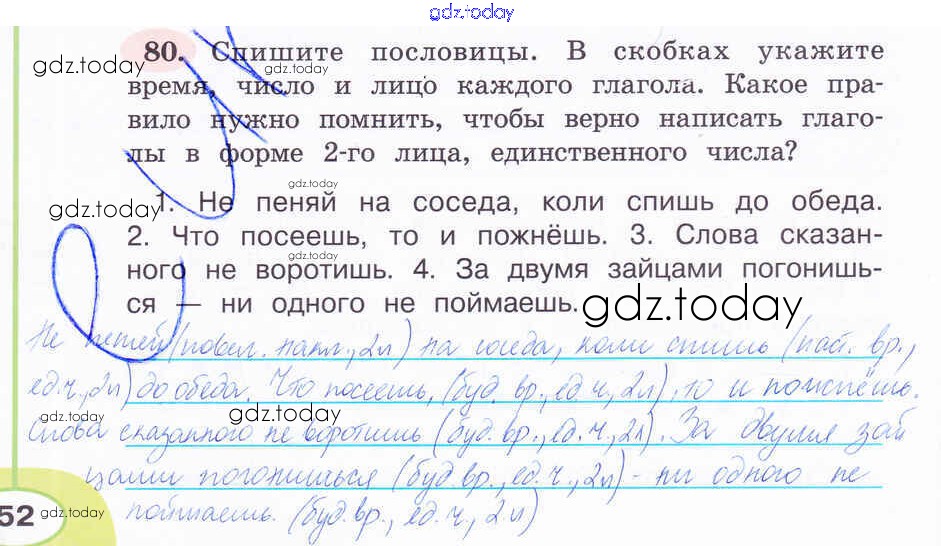 gdz.today
80. Спишите пословицы. В скобках укажите
gdz.today
gdz.today
время, число и лицо каждого глагола. Какое пра-
вило нужно помнить, чтобы верно написать глаго-
лы в форме 2-го лица, единственного числа?
gdz.today
1. Не пеняй на соседа, коли спишь до обеда.
gdz.today
2. Что посеешь, то и пожнёшь. 3. Слова сказан-
gdz.today
ного не воротишь. 4. За двумя зайцами погонишь-
ся — ни одного не поймаешь.
gdz.today
Не пеняй (повел. накл., 2л) на соседа, коли спишь (наст. вр.,
ед.ч., 2л) до обеда. Что посеешь, (буд. вр., ед.ч., 2л), то и пожнёшь.
gdz.today
gdz.today
Слова сказанного не воротишь (буд. вр., ед.ч., 2л). За двумя зай
цами погонишься (буд. вр., ед.ч., 2л) - ни одного не
поймаешь. (буд. вр., ед.ч., 2л)
52
gdz.today
gdz.today